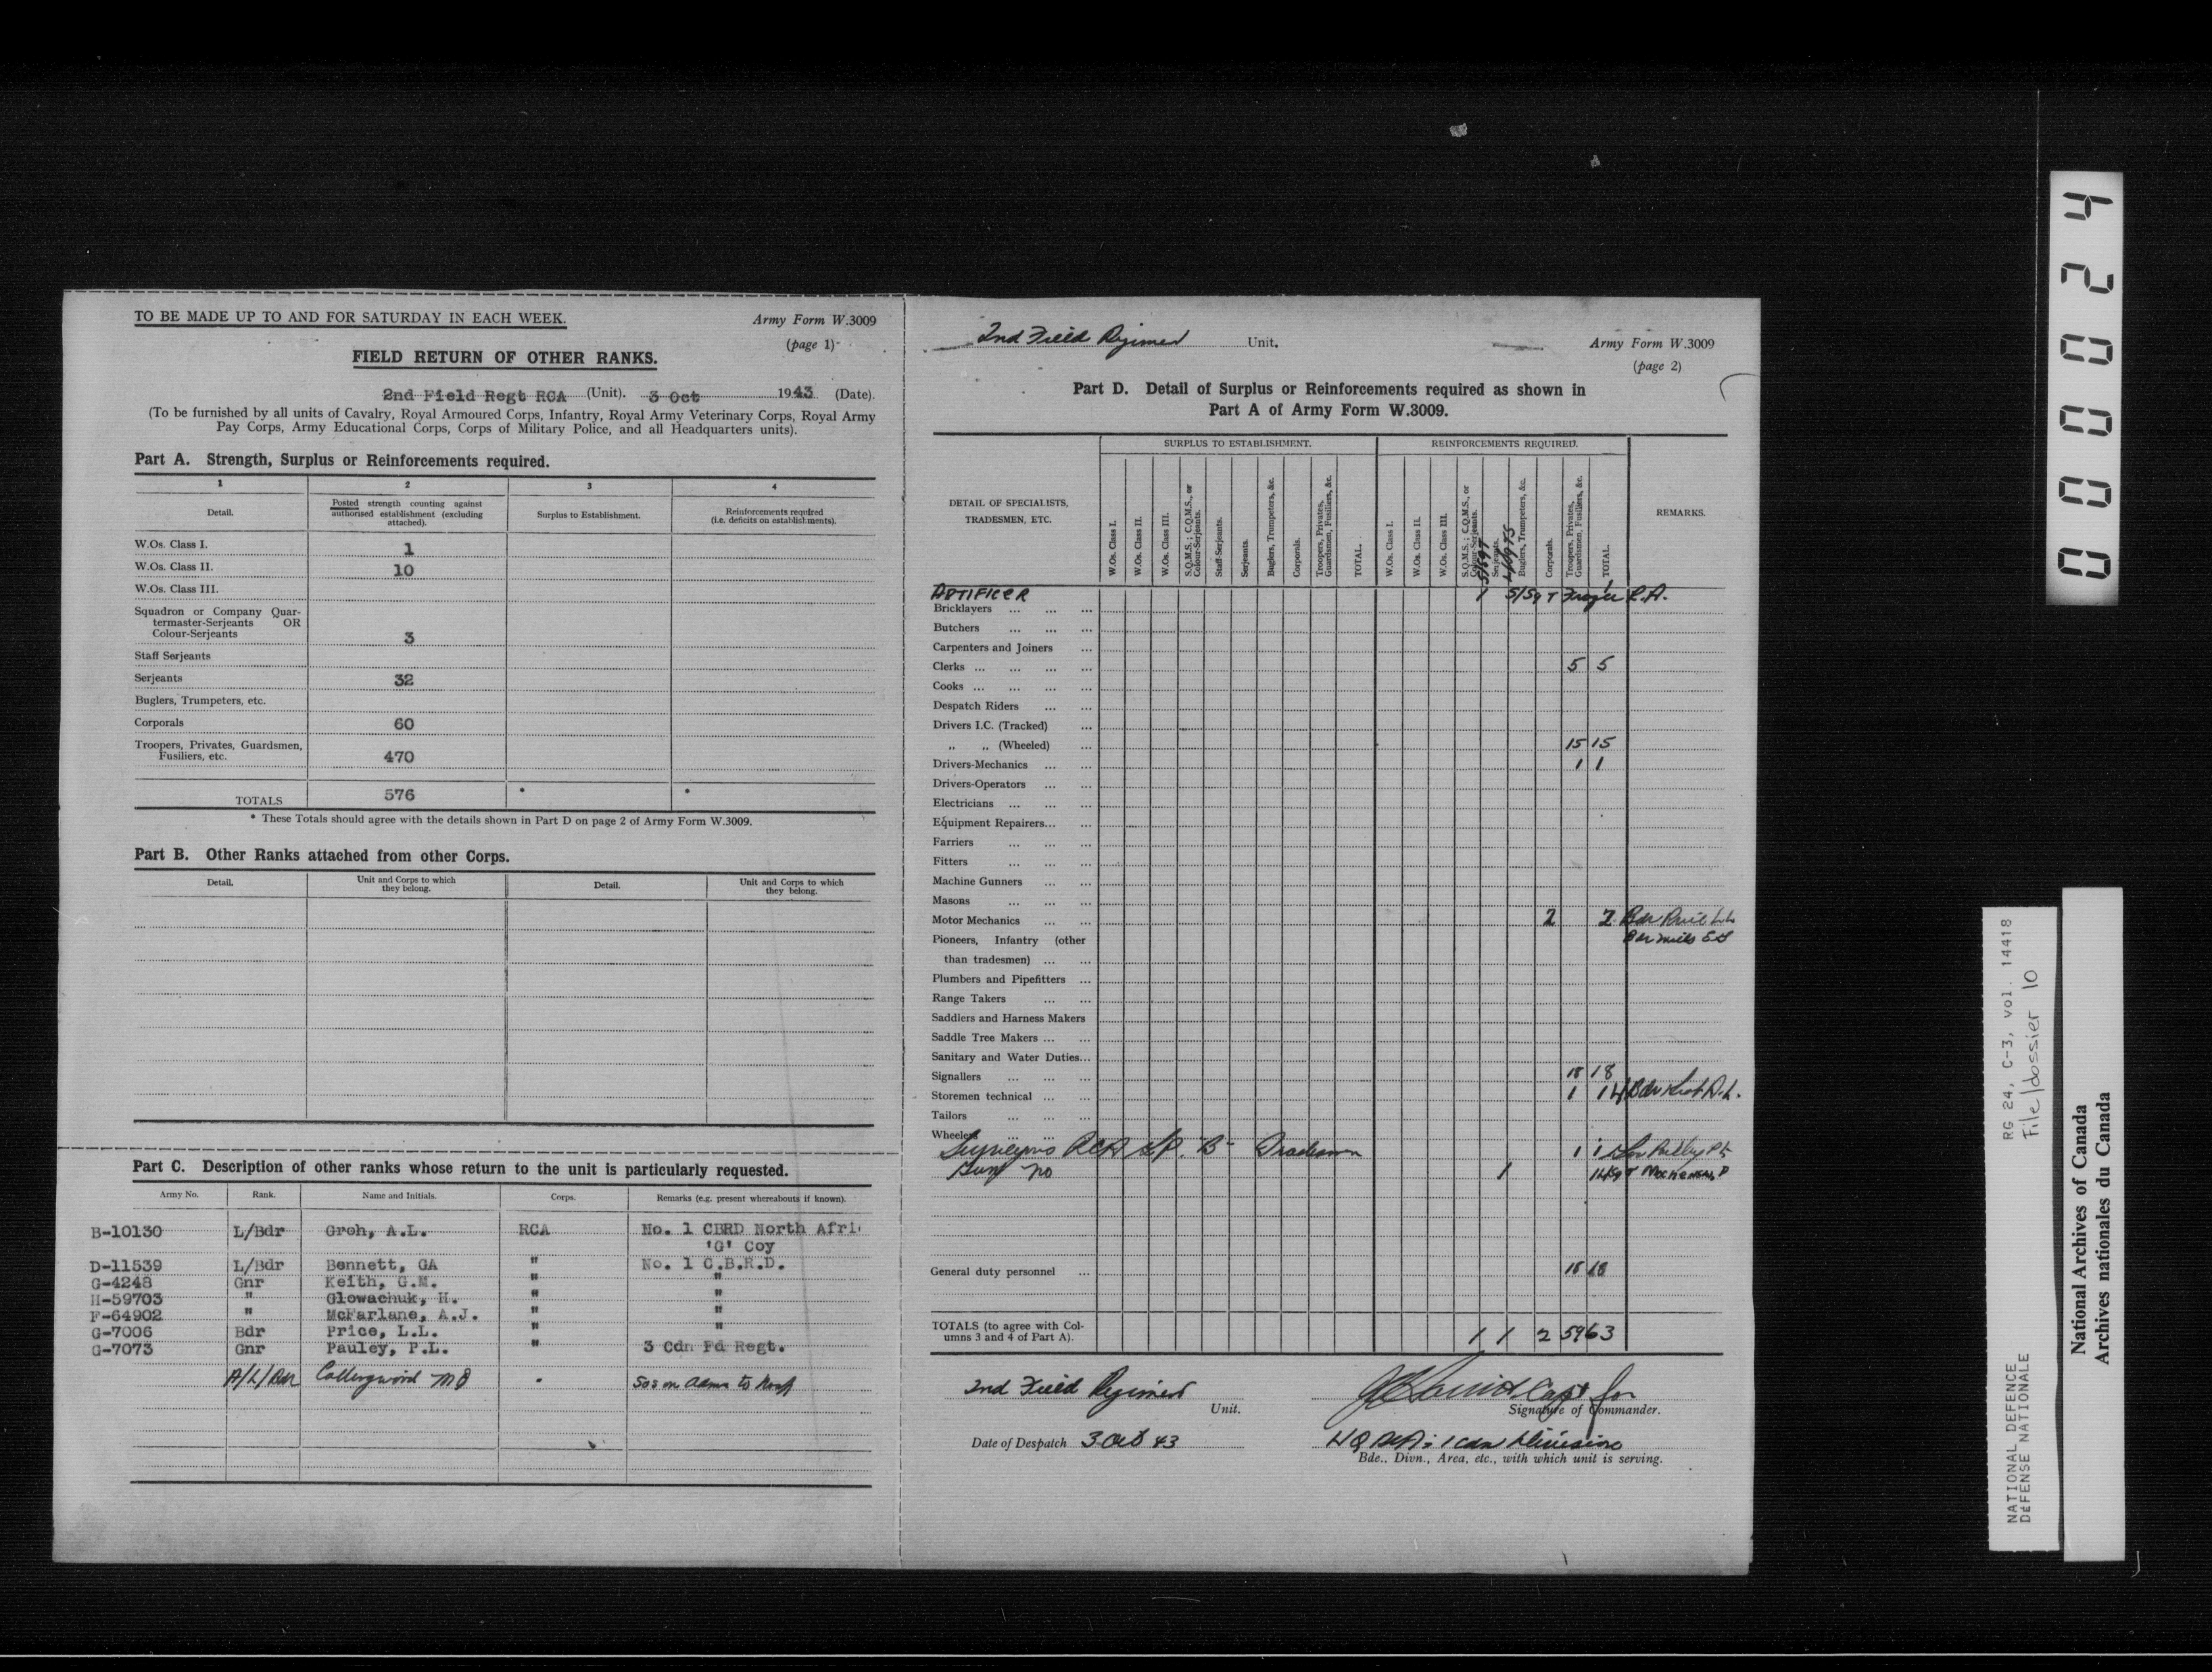 TO BE MADE UP TO AND FOR SATURDAY IN EACH WEEK.
Army Form W.3009
(page 1)
FIELD RETURN OF OTHER RANKS.
2nd Field Regt RCA (Unit). 3 Oct 1943 (Date).
(To be furnished by all units of Cavalry, Royal Armoured Corps, Infantry, Royal Army Veterinary Corps, Royal Army
Pay Corps, Army Educational Corps, Corps of Military Police, and all Headquarters units).
Part A. Strength, Surplus or Reinforcements required.
1 2 3 4
Detail. Posted strength counting against authorised establishment (excluding attached). Surplus to Establishment. Reinforcements required (i.e. deficits on establishments).
W.Os. Class I. 1
W.Os. Class II. 10
W.Os. Class III.
Squadron or Company Quar-
termaster-Serjeants OR
Colour-Serjeants 3
Staff Serjeants
Serjeants 32
Buglers, Trumpeters, etc.
Corporals 60
Troopers, Privates, Guardsmen,
Fusiliers, etc. 470
TOTALS 576 * *
* These Totals should agree with the details shown in Part D on page 2 of Army Form W.3009.
Part B. Other Ranks attached from other Corps.
Detail. Unit and Corps to which they belong. Detail. Unit and Corps to which they belong.
Part C. Description of other ranks whose return to the unit is particularly requested.
Army No. Rank. Name and Initials. Corps. Remarks (e.g. present whereabouts if known).
B-10130 L/Bdr Groh, A.L. RCA No. 1 CBRD North Afri
'G' Coy
D-11539 L/Bdr Bennett, GA " No. 1 C.B.R.D.
G-4248 Gnr Keith, G.M. " "
H-59703 " Glowachuk, H. " "
F-64902 " McFarlane, A.J. " "
G-7006 Bdr Price, L.L. " "
G-7073 Gnr Pauley, P.L. " 3 Cdn Fd Regt.
A/L/Bdr Collingwood MD " SOS on Adms to Hosp
2nd Field Regiment Unit.
Army Form W.3009
(page 2)
Part D. Detail of Surplus or Reinforcements required as shown in
Part A of Army Form W.3009.
SURPLUS TO ESTABLISHMENT. REINFORCEMENTS REQUIRED.
DETAIL OF SPECIALISTS,
TRADESMEN, ETC.
W.Os. Class I.
W.Os. Class II.
W.Os. Class III.
S.Q.M.S.; C.Q.M.S., or Colour-Serjeants.
Staff-Serjeants.
Serjeants.
Buglers, Trumpeters, &c.
Corporals.
Troopers, Privates, Guardsmen, Fusiliers, &c.
TOTAL.
W.Os. Class I.
W.Os. Class II.
W.Os. Class III.
S.Q.M.S.; C.Q.M.S., or Colour-Serjeants.
S/SGT
Serjeants.
Buglers, Trumpeters, &c.
Corporals.
Troopers, Privates, Guardsmen, Fusiliers, &c.
TOTAL.
REMARKS.
ARTIFICER 1 S/Sgt 1
Bricklayers
Butchers
Carpenters and Joiners
Clerks 5 5
Cooks
Despatch Riders
Drivers I.C. (Tracked)
" " (Wheeled) 15 15
Drivers-Mechanics 1 1
Drivers-Operators
Electricians
Equipment Repairers
Farriers
Fitters
Machine Gunners
Masons
Motor Mechanics 2 2 Bdr
Bdr Mills
Pioneers, Infantry (other
than tradesmen)
Plumbers and Pipefitters
Range Takers
Saddlers and Harness Makers
Saddle Tree Makers
Sanitary and Water Duties
Signallers 18 18
Storemen technical 1 1
Tailors
Wheelers
Surveyors RCA Gp. B Tradesmen 1 1
Gun No 1 1
General duty personnel 18 18
TOTALS (to agree with Col-
umns 3 and 4 of Part A). 1 1 2 59 63
2nd Field Regiment
Unit.
Capt for
Signature of Commander.
Date of Despatch 3 Oct 43
HQ RCA 1 Cdn Division
Bde., Divn., Area, etc., with which unit is serving.
000024
RG 24, C-3, vol. 14418
File/dossier 10
NATIONAL DEFENCE
DÉFENSE NATIONALE
National Archives of Canada
Archives nationales du Canada